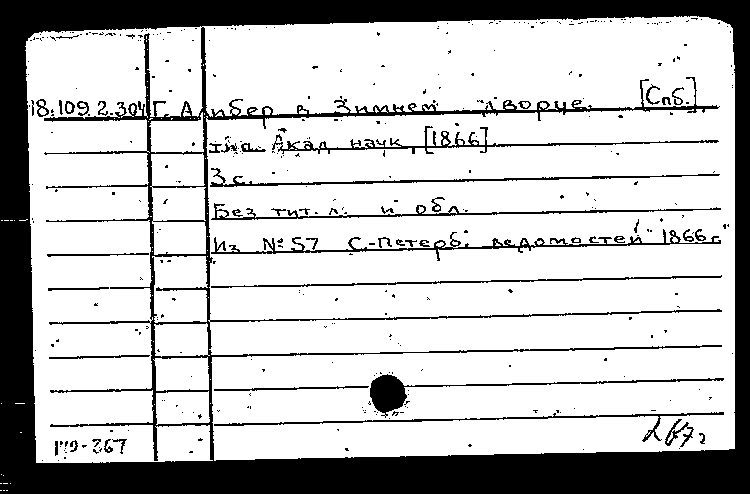 18.109.2.304 Г. Алибер в Зимнем дворце. [Спб.]
тип. Акад. наук, [1866].
3 с.
Без тит. л. и обл.
Из № 57 С.-Петерб. ведомостей 1866 г."